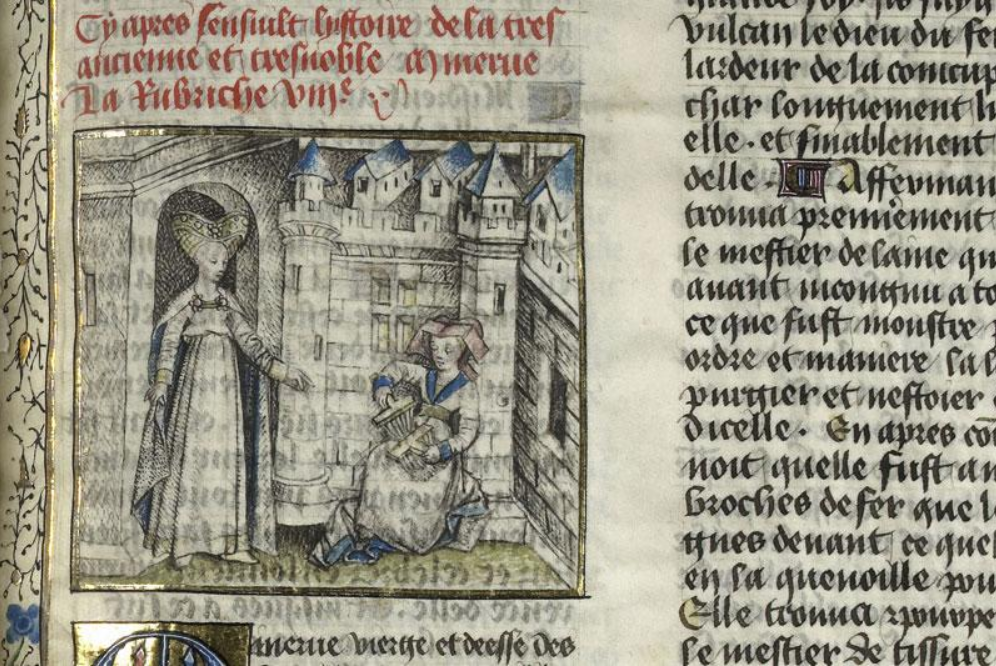 Cy apres sensuilt lystoire de la tres
ancienne et tresnoble Minerue
La Rubriche viiie
Minerue vierge et deesse des
vulcan le dieu du fe
lardeur de la concup
char longuement l
elle. et finablement
delle. Affermant
trouua premierement
le mestier de laine qu
auant incongnu a to
ce que fust monstre
ordre et maniere la l
purgier et nestoier
dicelle. En apres co
noit quelle fust a
broches de fer que l
gnes deuant ce quel
en sa quenoille pou
Elle trouua
le mestier de tissure